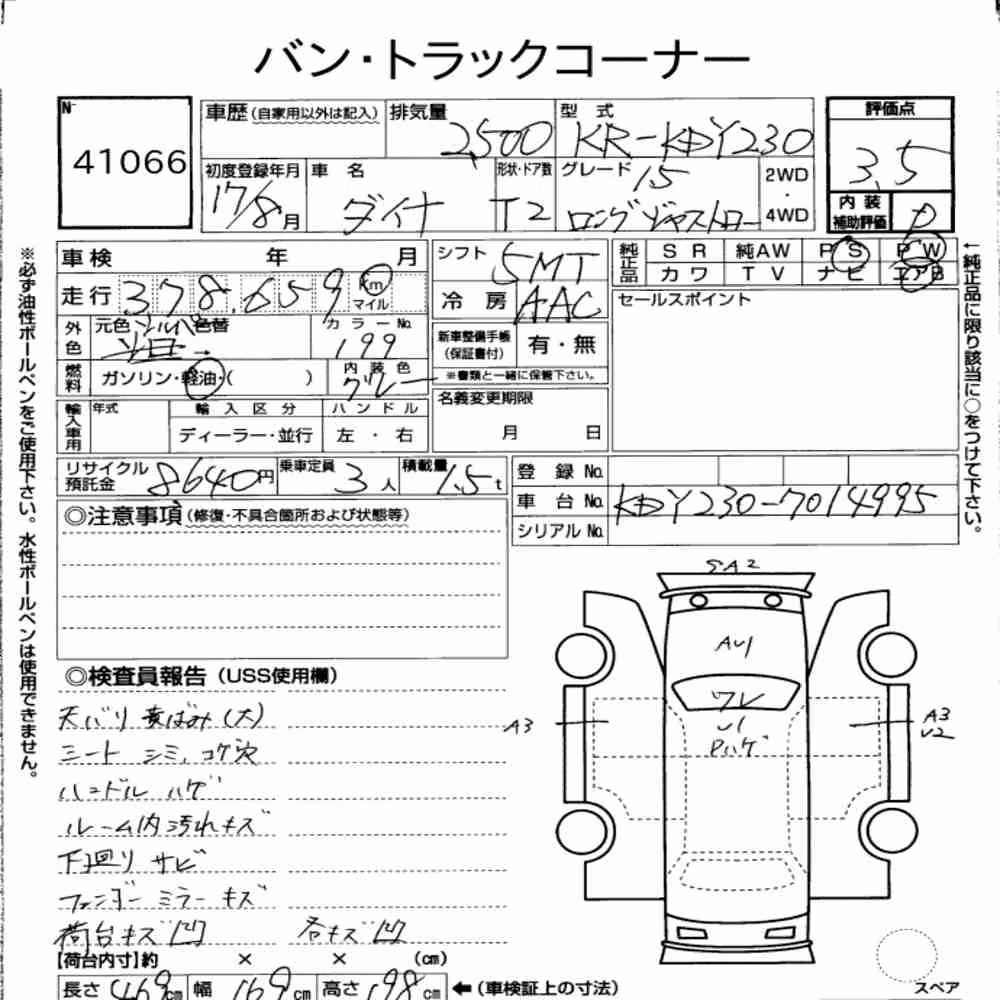 バン・トラックコーナー
N-
41066
車歴(自家用以外は記入)
排気量
2,500
型 式
KR-KDY230
評価点
3.5
初度登録年月
17/8月
車 名
ダイナ
形状・ドア数
T2
グレード
15
ロングジャストロー
2WD
・
4WD
内 装
補助評価
D
車検 年 月
シフト
5MT
純正品
S R 純AW P S P W
カ ワ T V ナ ビ エアB
走行 378,659 Km
マイル
冷 房
AAC
セールスポイント
外色
元色 シルバー 色替
カ ラ ー No.
199
新車整備手帳
(保証書付)
有・無
※書類と一緒に保管下さい。
燃料
ガソリン・軽油・( )
内 装 色
グレー
輸入車用
年式
輸 入 区 分
ハ ン ド ル
ディーラー・並行
左 ・ 右
名義変更期限
月 日
リサイクル
預託金
8640円
乗車定員
3人
積載量
1.5t
登 録 No.
車 台 No. KDY230-7014995
シリアル No.
◎注意事項(修復・不具合箇所および状態等)
◎検査員報告(USS使用欄)
天バリ 黄ばみ(大)
シート シミ、コゲ穴
ハンドル ハゲ
ルーム内 汚れキズ
下廻り サビ
フェンダーミラー キズ
荷台キズ凹 各キズ凹
【荷台内寸】約 × × (cm)
長さ 469cm 幅 169cm 高さ 198cm ←(車検証上の寸法)
SA2
AU1
ワレ
U1
Pハゲ
A3
A3
U2
スペア
※必ず油性ボールペンをご使用下さい。水性ボールペンは使用できません。
←純正品に限り該当に○をつけて下さい。